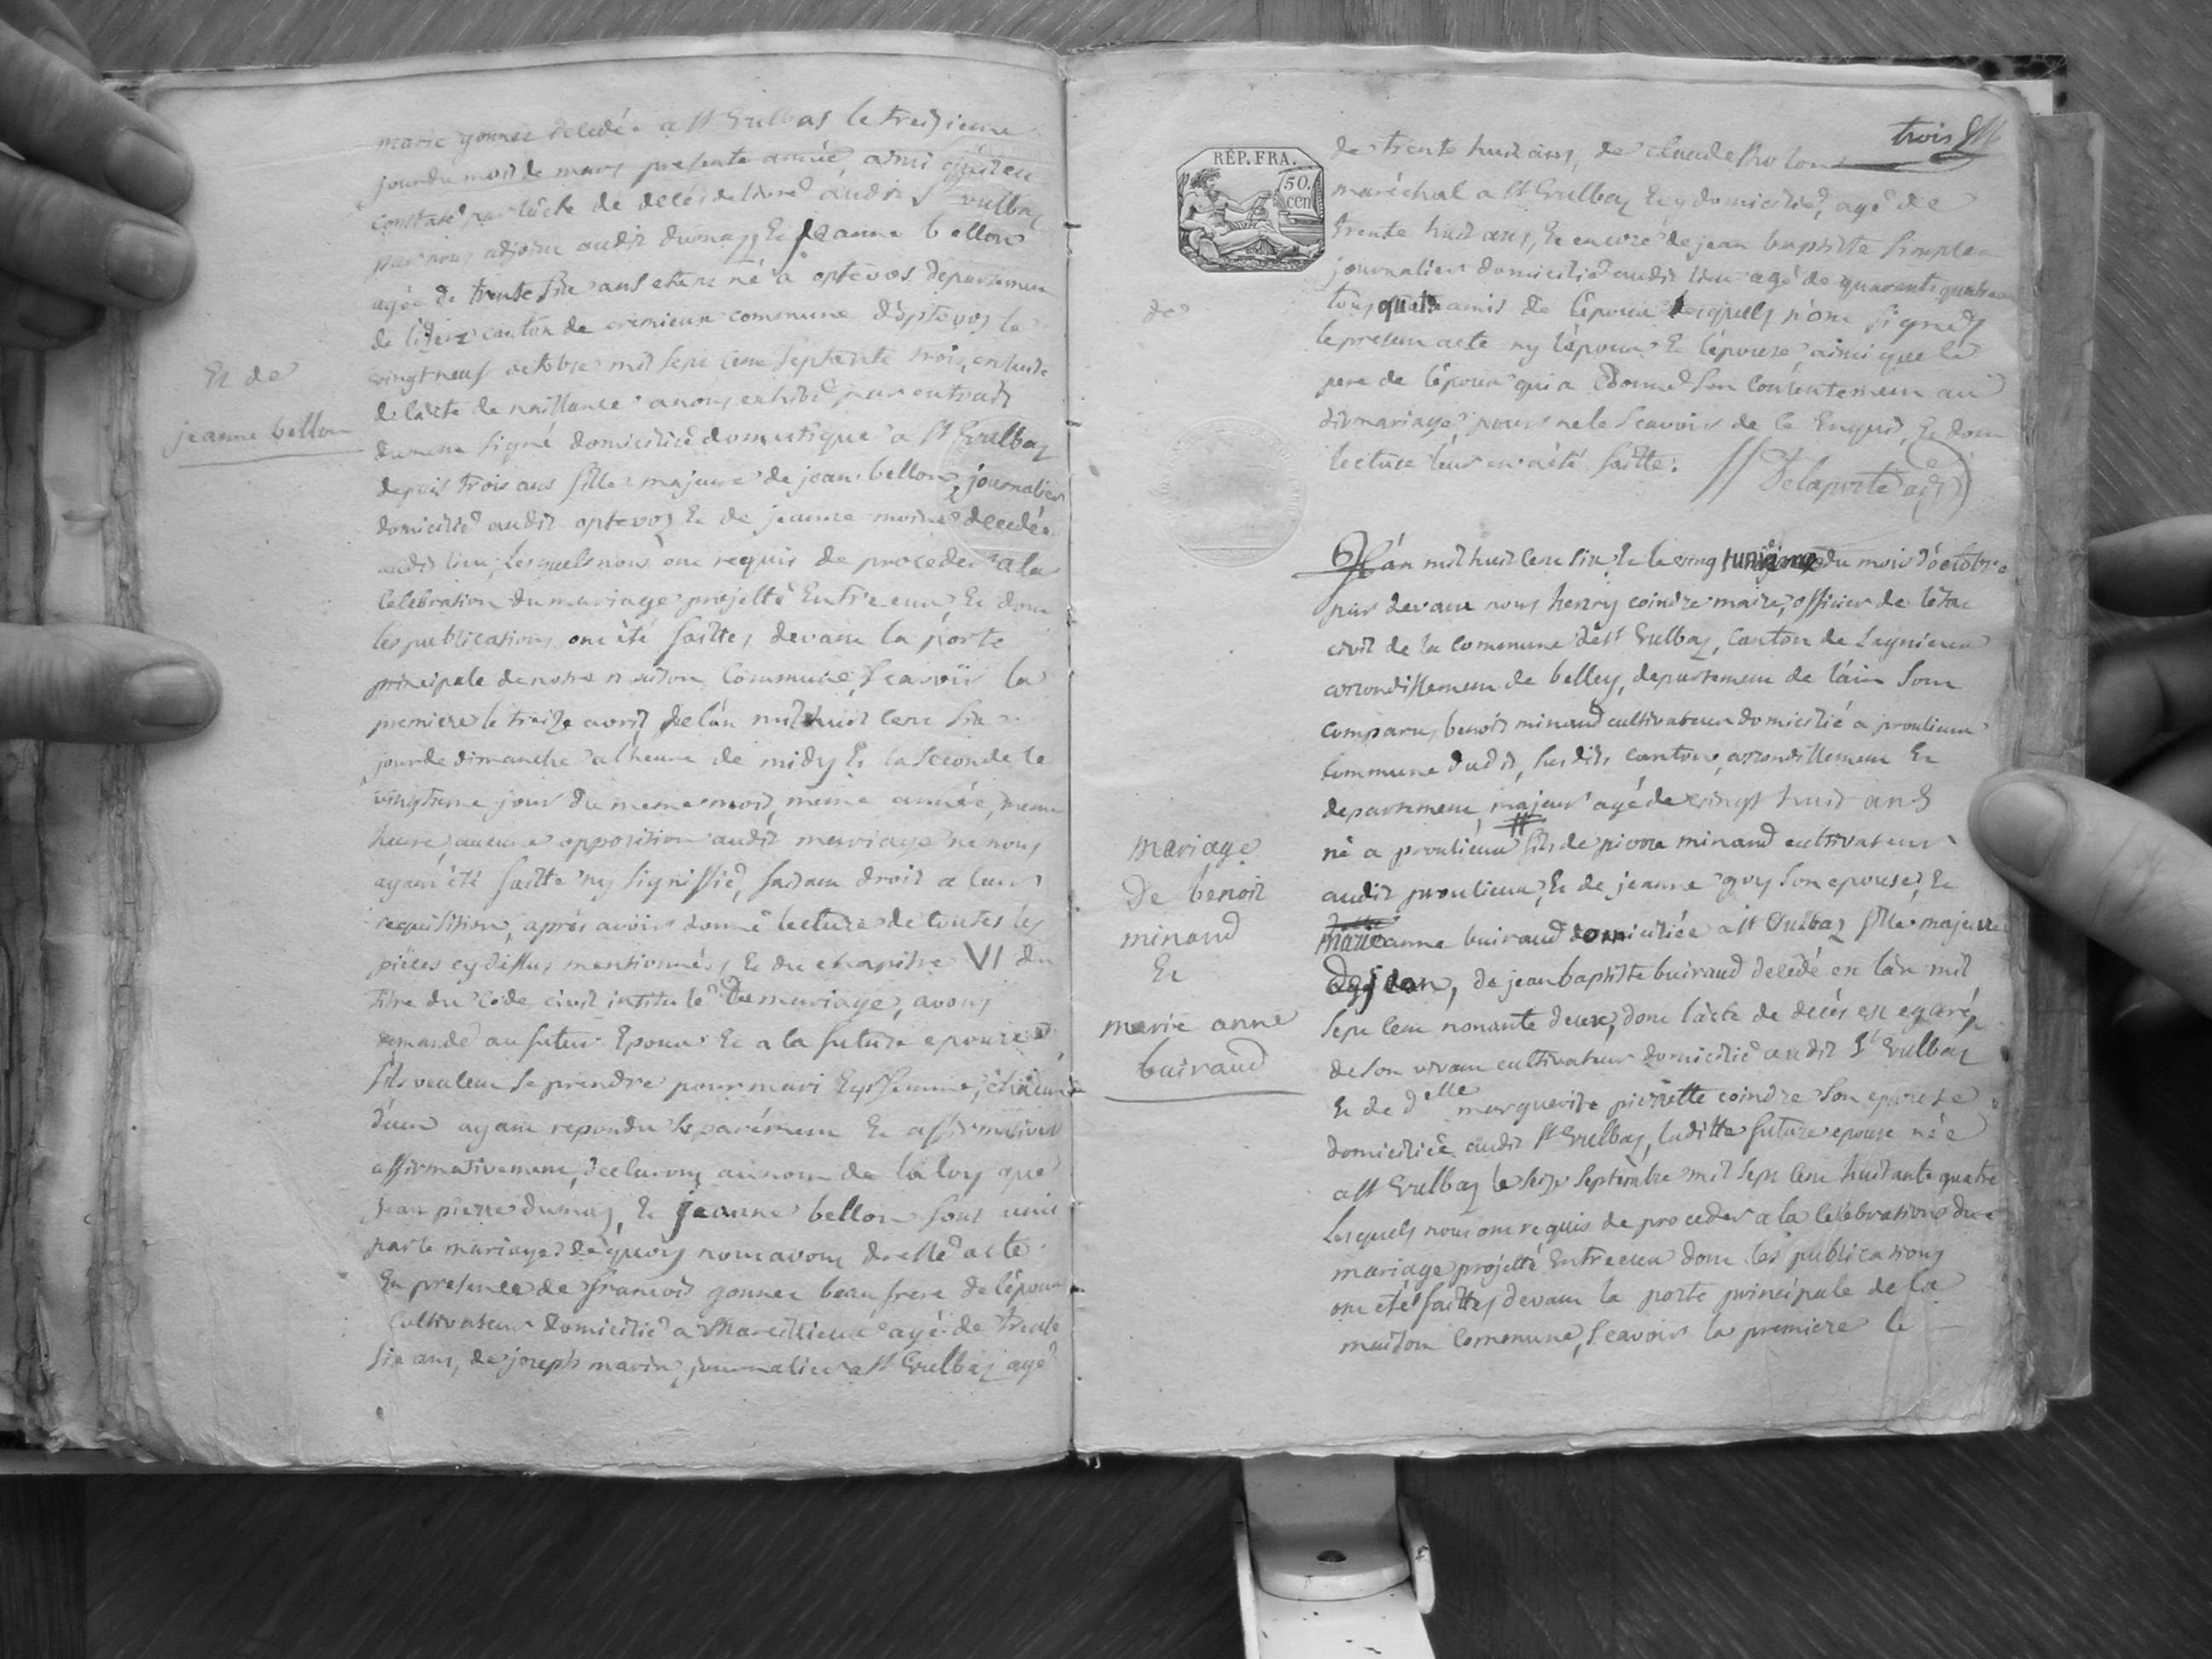 marie gonnet decedée a St Vulbas le treizieme
jour du mois de mars presente année, ainsi qu'il en
constate par lacte de décés delivré audit St Vulbas
par nous adjoint audit dumas, Et jeanne bellon
agée de trente six ans etant né a optevos, departement
de lizere canton de cremieux commune d'optevoz le
vingt neuf octobre mil sept cent septente trois, ensuite
de lacte de naissance a nous exhibé par extrait
dument signé domiciliée domestique a St Vulbas
depuis trois ans fille majeure de jean bellon, journalier
domicilié audit optevoz Et de jeanne moine decedée
audit lieu, Lesquels nous ont requis de proceder a la
celebration du mariage projetté Entre eux, Et dont
les publications ont été faittes devant la porte
principale de notre maison Commune, Scavoir la
premiere le treize avril de lán mil huit cent six
jour de dimanche a lheure de midy Et la Seconde le
vingtieme jour du meme mois, meme année, meme
heure, aucune opposition audit mariage ne nous
ayant été faitte ny signiffié, faisant droit a leur
requisition, aprés avoir donné lecture de toutes les
piéces cy dessus mentionnés, Et du chapitre VI du
titre du Code civil intitulé du mariage, avons
demandé au futur Epoux Et a la future epouse
Sils veulent Se prendre pour mari Et femme, chacun
d'eux ayant repondu Separément Et affirmativem
affirmativement, declarons au nom de la loy que
jean pierre dumas, Et jeanne bellon sont unis
par le mariage, de quoy nous avons dressé acte
En presence de francois gonnet beau frere de l'époux
Cultivateur domicilié a Marcillieux agé de trente
Six ans, de joseph marin, journalier a St Vulbas agé
Et de
jeanne bellon
trois
RÉP. FRA.
50.
cen
de trente huit ans, de claude
maréchal a St Vulbas Et y domicilié, agé de
trente huit ans, Et encore de jean baptiste
journalier domicilié audit lieu agé de quarante quatre
tous quatre amis de l'époux lesquels n'ont Signés
le present acte ny l'époux Et l'épouse ainsi que le
pere de l'époux qui a donné Son Consentement au
dit mariage pour ne le Scavoir de ce Enquis, Et dont
lecture leur en a été faitte.
Delaporte adj
de
L'án mil huit cent six Et le vingt unieme du mois d'octobre
par devant nous henry coindre maire, officier de létat
civil de la Commune de St Vulbas, Canton de Lagnieux
arrondissement de belley, departement de l'ain Sont
comparu, benoit minaud cultivateur domicilié a proulieux
Commune dudit, Susdits canton, arrondissement Et
departement, majeur agé de vingt huit ans
né a proulieux fils de pierre minaud cultivateur
audit proulieux, Et de jeanne guy Son epouse, Et
marie anne buiraud domiciliée a St Vulbas fille majeure
de jean baptiste buiraud decedé en lán mil
Sept Cent nonante deux, dont lácte de décés est egaré,
de son vivant cultivateur domicilié audit St Vulbas
Et de delle marguerite pierrette coindre Son epouse
domiciliée audit St Vulbas, laditte future epouse née
a St Vulbas le seize Septembre mil Sept Cent huitante quatre
Lesquels nous ont requis de proceder a la Célébration du
mariage projetté Entre eux dont les publications
ont étés faittes devant la porte principale de la
maison Commune, Scavoir la premiere le
mariage
De benoit
minaud
Et
marie anne
buiraud